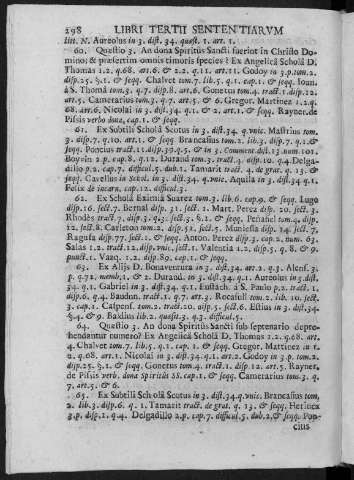 298 LIBRI TERTII SENTENTIARVM
litt. N. Aureolus in 3. dist. 34. quæst. 1. art. 1.
60. Quæstio 3. An dona Spiritûs Sancti fuerint in Christo Do-
mino; & præsertim donum timoris species? Ex Angelicâ Scholâ D.
Thomas 1.2. q.68. art.6. & 2.2. q.11. art.11. Godoy in 3.p.tom.2.
disp.25. §.1. & seqq. Chalvet tom.7. lib.6. q.5. cap.1. & seqq. Ioan.
à S. Thomâ tom.3. q.7. disp.8. art.6. Gonetus tom.4. tract.1. disp.12.
art.5. Camerarius tom.3. q.7. art.5. & 6. Gregor. Martinez 1.2.q.
68. art.6. Nicolai in 3. dist.34. q.1. & 2. art.1. & seqq. Rayner. de
Pisis verbo dona, cap.1. & seqq.
61. Ex Subtili Scholâ Scotus in 3. dist.34. q.vnic. Mastrius tom.
3. disp.7. q.10. art.1. & seqq. Brancasius tom.2. lib.3. disp.7. q.1.&
seqq. Poncius tract.1. disp.39.q.5. & in 3. Comment. dist.13. num.101.
Boyvin 2.p. cap.8. q.12. Durand tom.3. tract.4. disp.10. q.4. Delga-
dillo p.2. cap.7. difficul.5. dub.1. Tamarit tract. 4. de grat. q.13. &
seqq. Cavellus in Suppl. dist.34. q.vnic. Aquila in 3. dist.34.q.1.
Felix de incarn. cap.12. difficul.3.
62. Ex Scholâ Eximiâ Suarez tom.3. lib.6. cap.9. & seqq. Lugo
disp.16. sect.7. Bernal disp.31. sect.2. Mart. Perez disp. 20. sect.3.
Rhodès tract.7. disp.3. q.3. sect.3. §.1. & seqq. Peñafiel tom.4. disp.
12. sect.8. Carleton tom.2. disp.51. sect.5. Muniessa disp.14. sect.7.
Ragusa disp.77. sect.1. & seqq. Anton. Perez disp.3. cap.2. num. 63.
Salas 1.2. tract.12. disp.vnic. sect.1. Valentia 1.2. disp.5. q.8. & 9.
punct.1. Vazq. 1.2. disp.89. cap.1. & seqq.
63. Ex Alijs D. Bonaventura in 3. dist.34. art.2. q.3. Alens. 3.
p. q.72. memb.1. & 2. Durand. in 3. dist.34. q.1. Aureolus in 3. dist.
34. q.1. Gabriel in 3. dist.34. q.1. Eustach. à S. Paulo p.2. tract.1.
disp.6. q.4. Baudun. tract.1. q.7. art.3. Rocafull tom.2. lib.10. sect.
3. cap.1. Catpens. tom.2. tract.20. disp.5. sect.6. Estius in 3. dist.34.
§.4. & 9. Baldius lib.2. quæsit.3. q.3. difficul.5.
64. Quæstio 3. An dona Spiritûs Sancti sub septenario depre-
hendantur numero? Ex Angelicâ Scholâ D. Thomas 1.2. q.68. art.
4. Chalvet tom.7. lib.5. q.1. cap.1. & seqq. Gregor. Martinez in 1.
2. q.68. art.1. Nicolai in 3. dist.34. q.1. art.2. Godoy in 3.p. tom.2.
disp.25. §.1. & seqq. Gonetus tom.4. tract.1. disp.12. art.5. Rayner.
de Pisis verb. dona Spiritûs SS. cap.1. & seqq. Camerarius tom.3. q.
7. art.5. & 6.
65. Ex Subtili Scholâ Scotus in 3. dist.34.q.vnic. Brancasius tom.
2. lib.3. disp.6. q.1. Tamarit tract. de grat. q.13. & seqq. Herinex
3.p. disp.1. q.4. Delgadillo 2.p. cap.7. difficul.5. dub.2. & seqq. Pon-
cius